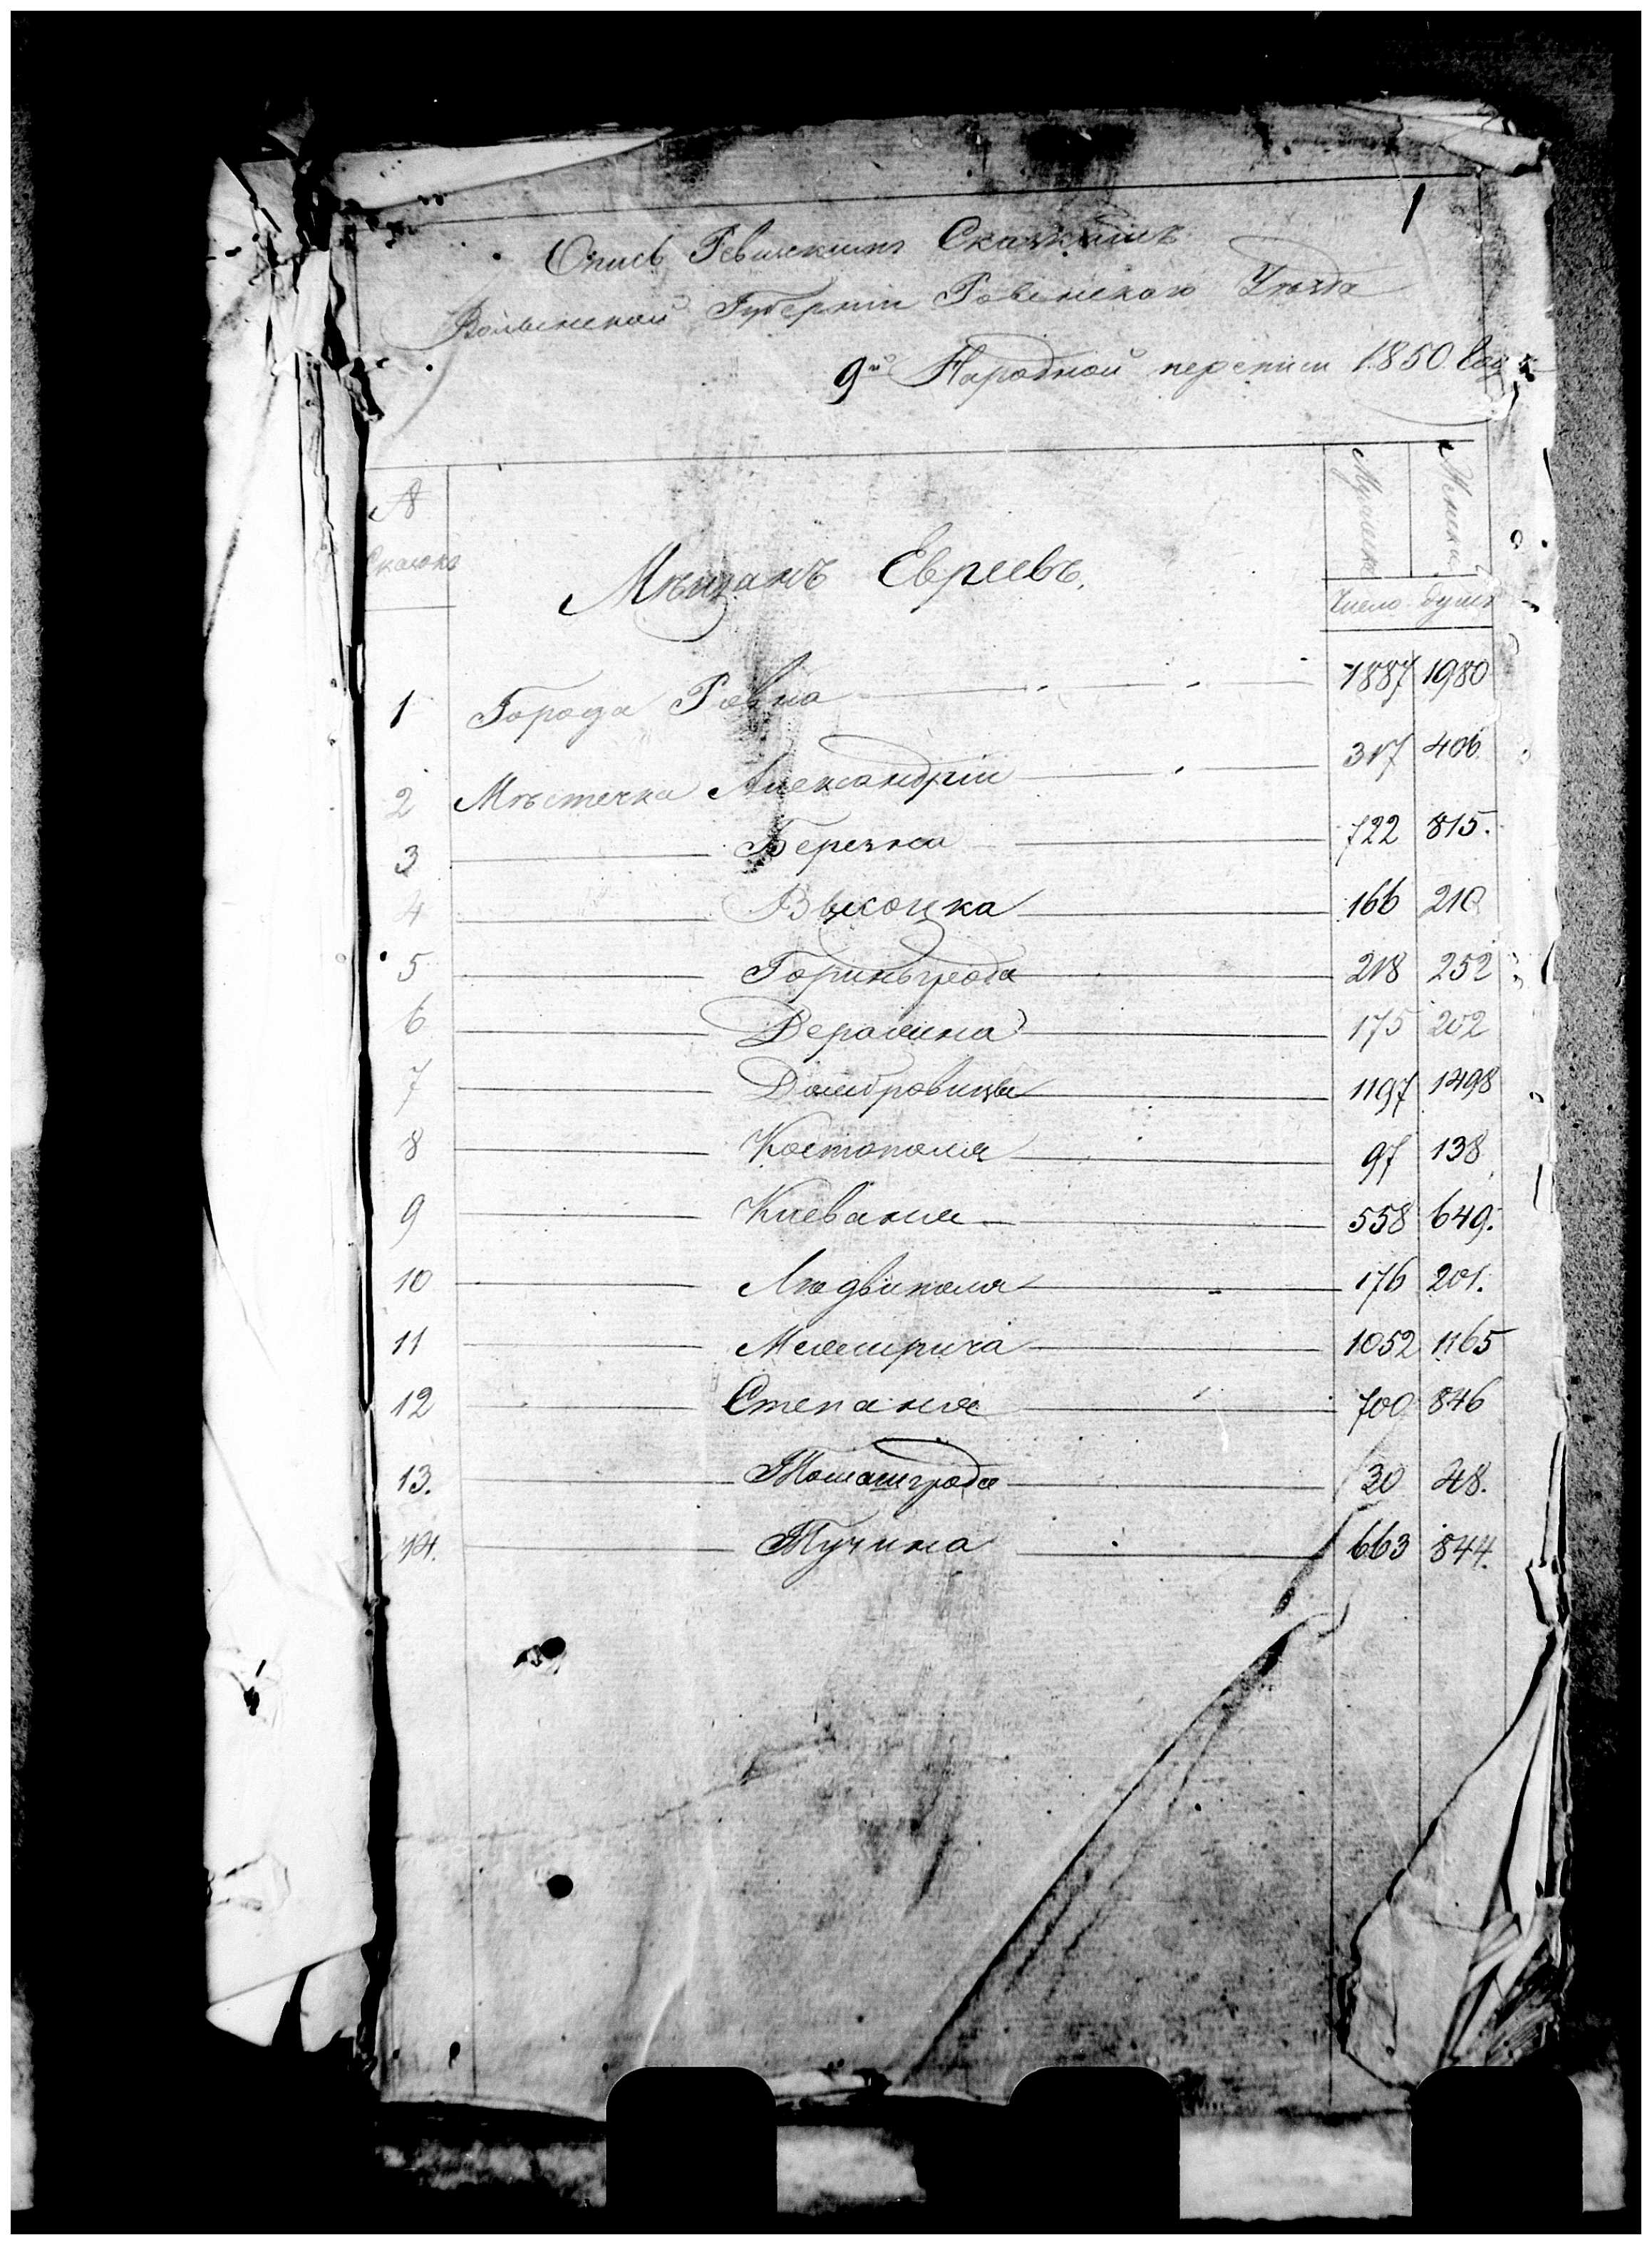 1
Опись Ревизкимъ Сказкамъ
Волынской Губерніи Ровенского Уѣзда
9й Народной переписи 1850 Года
№ Сказки
Мѣщанъ Евреевъ.
Мужеска Женска
Число душъ
1 Города Ровна 1887 1980
2 Мѣстечка Александріи 317 406
3 Березна 722 815.
4 Высоцка 166 210
5 Гориньграда 218 252
6 Деражна 175 202
7 Домбровицы 1197 1498
8 Костополя 97 138
9 Клеваня 558 649.
10 Людвиполя 176 201.
11 Межирича 1052 1165
12 Степаня 700 846
13. Томашграда 30 48.
14. Тучина 663 844.